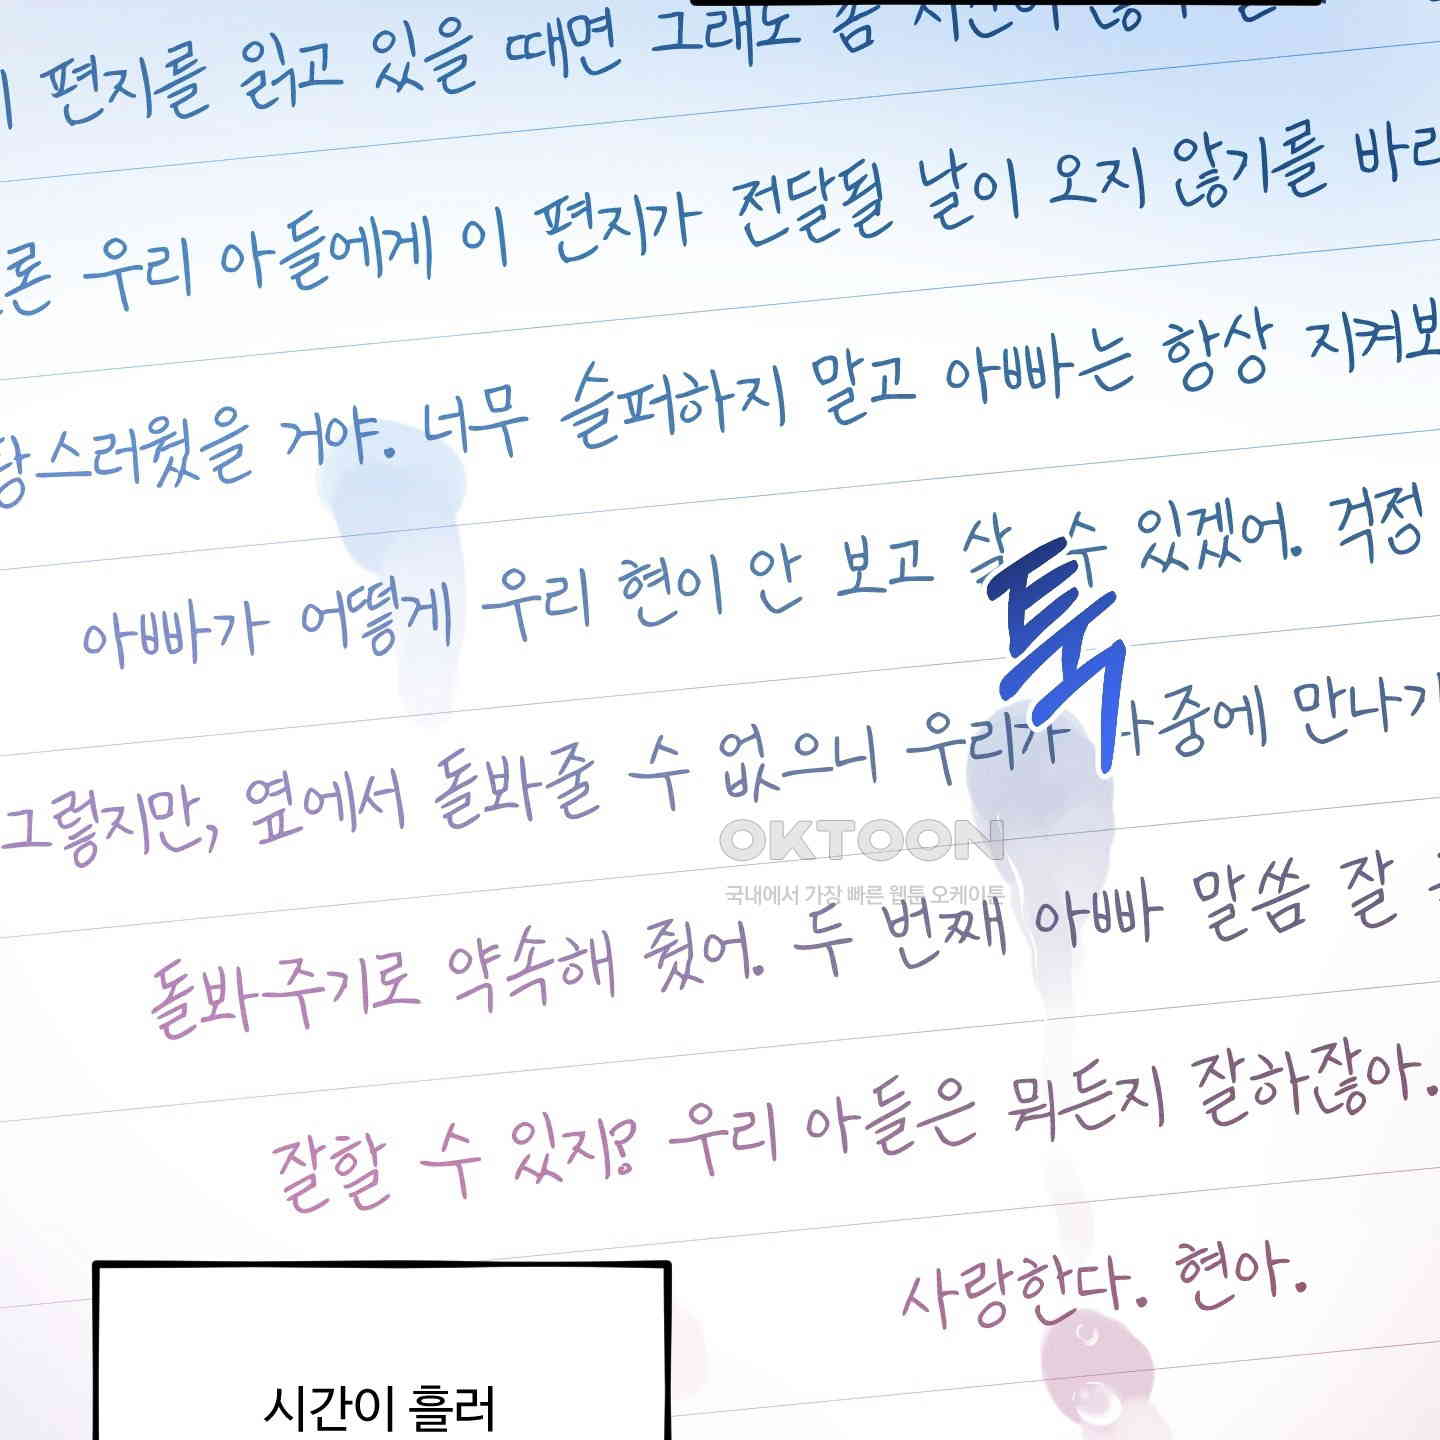 편지를 읽고 있을 때면 그래도 좀
우리 아들에게 이 편지가 전달될 날이 오지 않기를
거야. 너무 슬퍼하지 말고 아빠는 항상
아빠가 어떻게 우리 현이 안 보고 살 수 있겠어. 걱정
툭
그렇지만, 옆에서 돌봐줄 수 없으니 우리가 나중에
OKTOON
국내에서 가장 빠른 웹툰 오케이툰
돌봐주기로 약속해 줬어. 두 번째 아빠 말씀 잘
잘할 수 있지? 우리 아들은 뭐든지 잘하잖아.
사랑한다. 현아.
시간이 흘러